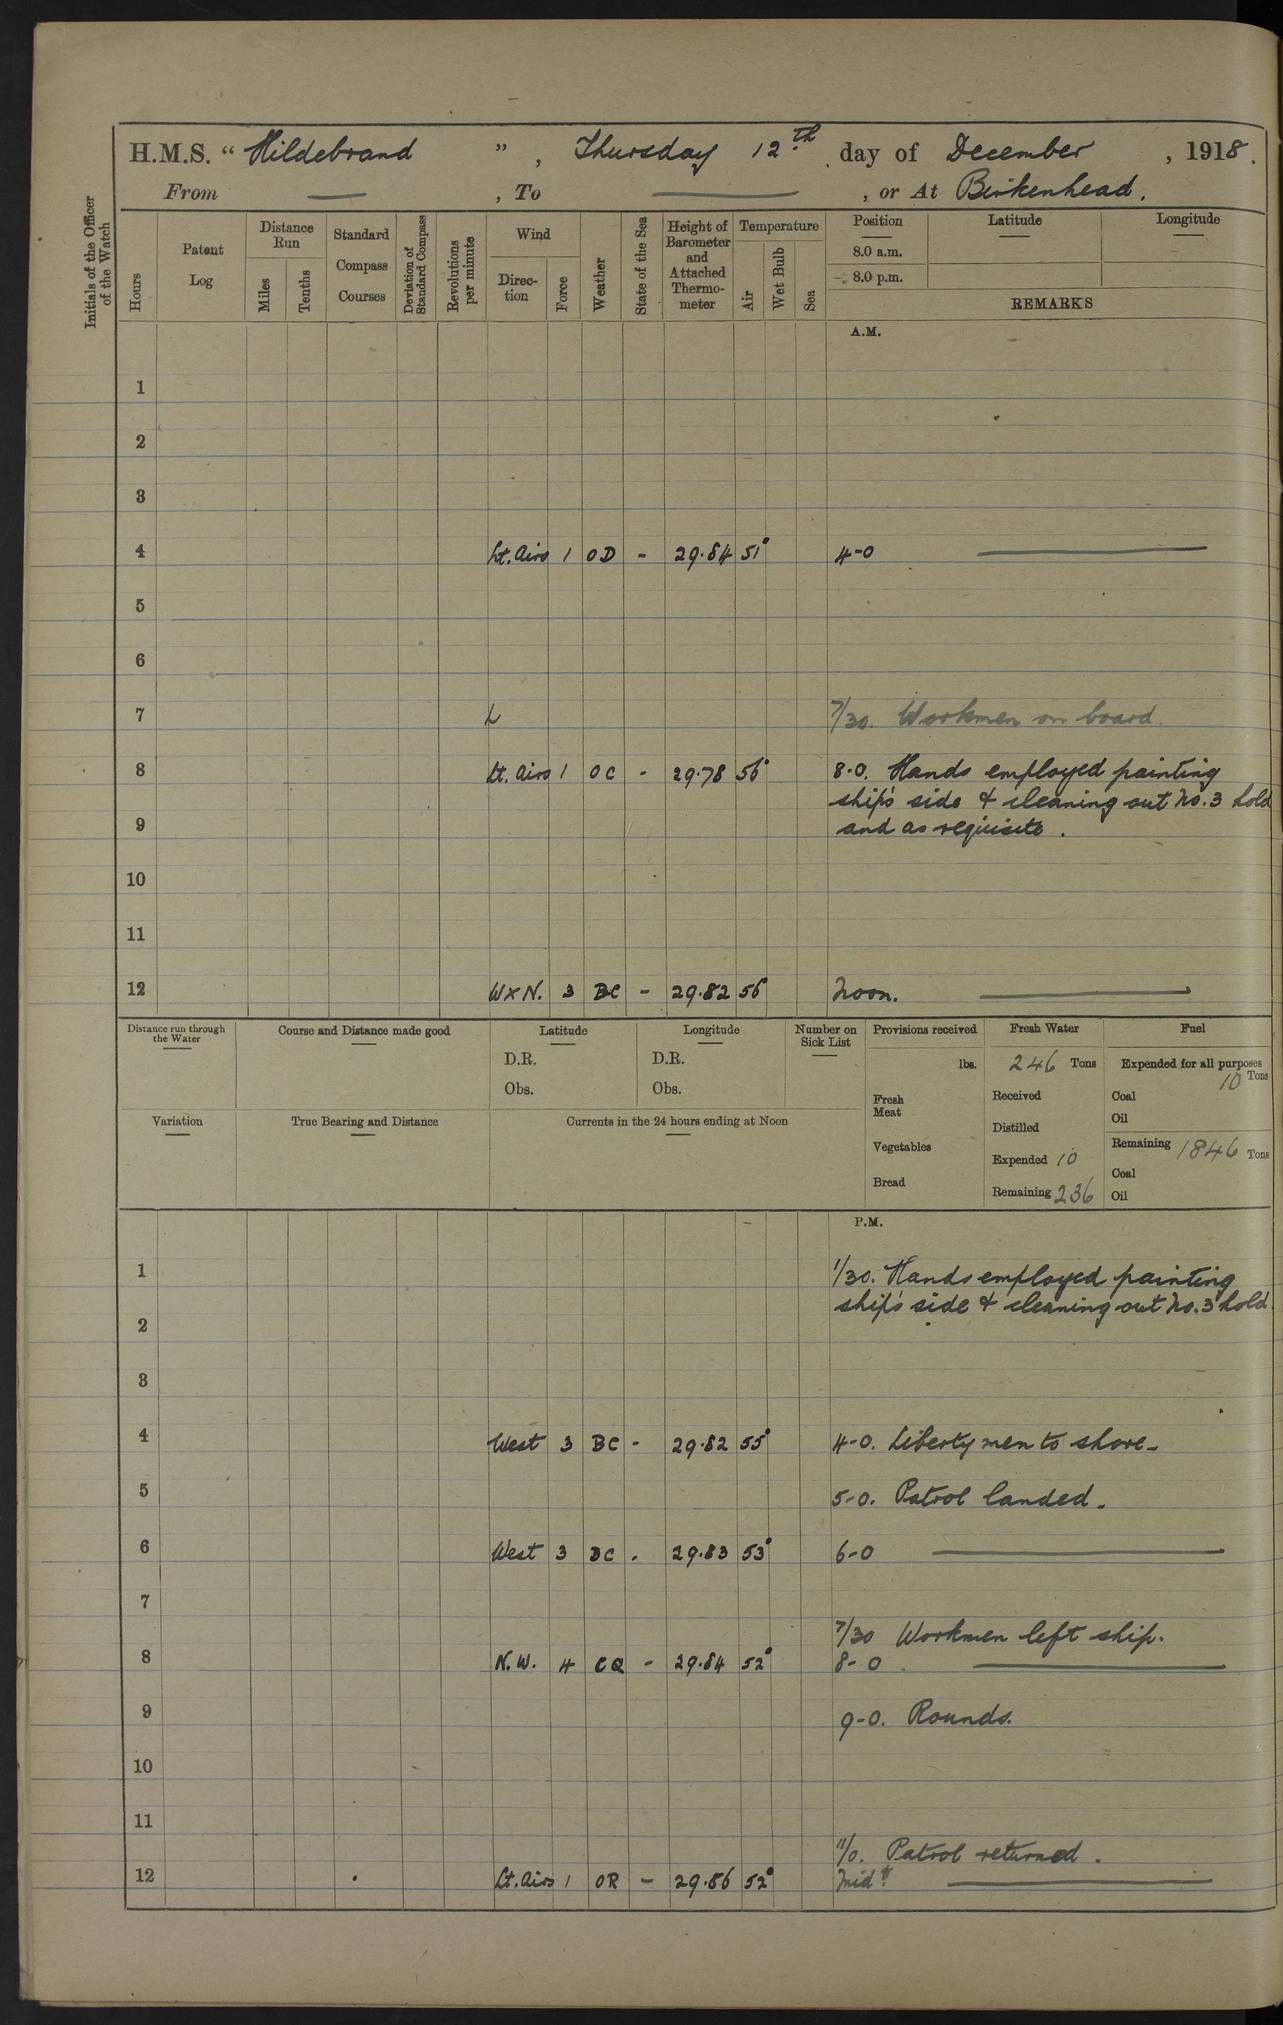 H.M.S. “ Hildebrand ” , Thursday 12th day of December , 1918.
From — , To — , or At Birkenhead.
Initials of the Officer of the Watch
Hours
Patent Log
Distance Run
Miles
Tenths
Standard Compass Courses
Deviation of Standard Compass
Revolutions per minute
Wind
Direc-tion
Force
Weather
State of the Sea
Height of Barometer and Attached Thermo-meter
Temperature
Air
Wet Bulb
Sea
Position Latitude Longitude
8.0 a.m.
8.0 p.m.
REMARKS
A.M.
1
2
3
4 Lt. Airs 1 OD - 29.84 51° 4-0 —
5
6
7 L 7/30. Workmen on board.
8 Lt. Airs 1 OC - 29.78 56° 8-0. Hands employed painting
ship's side & cleaning out No. 3 hold
9 and as requisite.
10
11
12 W x N. 3 BC - 29.82 56° Noon. —
Distance run through the Water
Course and Distance made good
Latitude
D.R.
Obs.
Longitude
D.R.
Obs.
Number on Sick List
Variation
True Bearing and Distance
Currents in the 24 hours ending at Noon
Provisions received
lbs.
Fresh Meat
Vegetables
Bread
Fresh Water
246 Tons
Received
Distilled
Expended 10
Remaining 236
Fuel
Expended for all purposes
10 Tons
Coal
Oil
Remaining 1846 Tons
Coal
Oil
P.M.
1 1/30. Hands employed painting
ship's side & cleaning out No. 3 hold
2
3
4 West 3 BC - 29.82 55° 4-0. Liberty men to shore -
5 5-0. Patrol landed.
6 West 3 BC . 29.83 53° 6-0 —
7
7/30 Workmen left ship.
8 N.W. 4 CQ - 29.84 52° 8-0. —
9 9-0. Rounds.
10
11
11/0. Patrol returned.
12 Lt. Airs 1 OR - 29.86 52° Midt. —